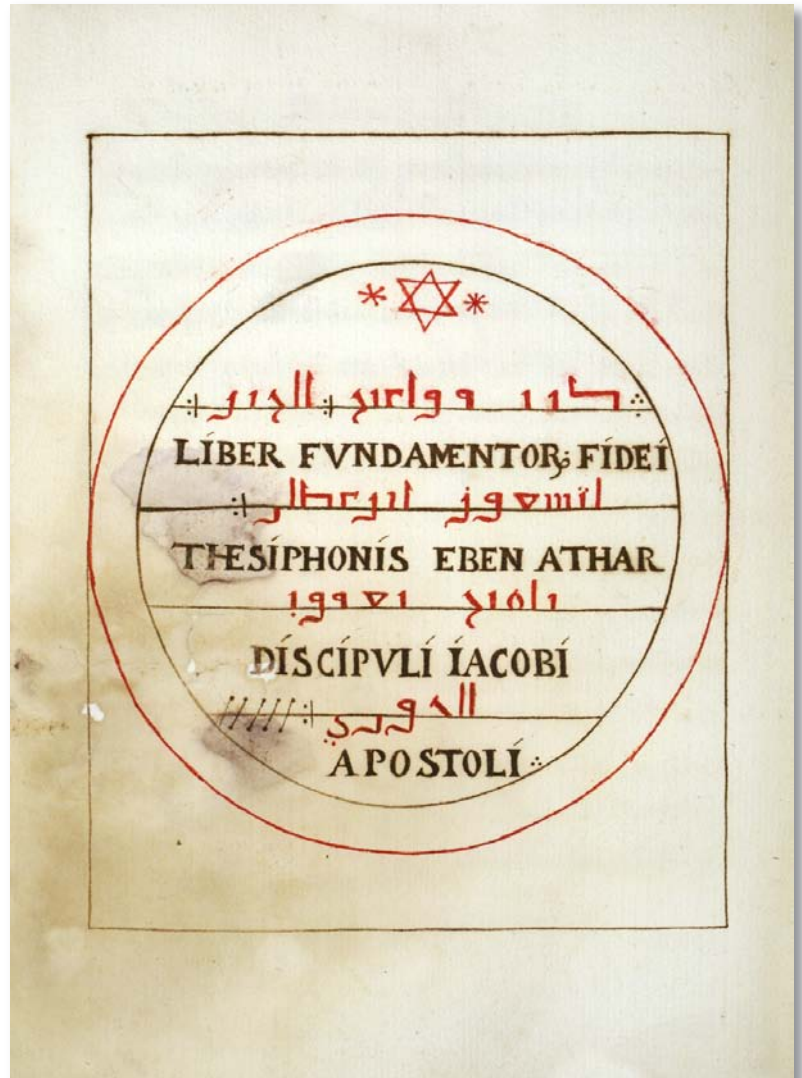 كتاب قواعد الدين
LÍBER FVNDAMENTORꝜ FÍDEÍ
لتسعون ابن عطار
THESÍPHONÍS EBEN ATHAR
تلميذ يعقوب
DÍSCÍPVLÍ ÍACOBÍ
الحوري
APOSTOLÍ